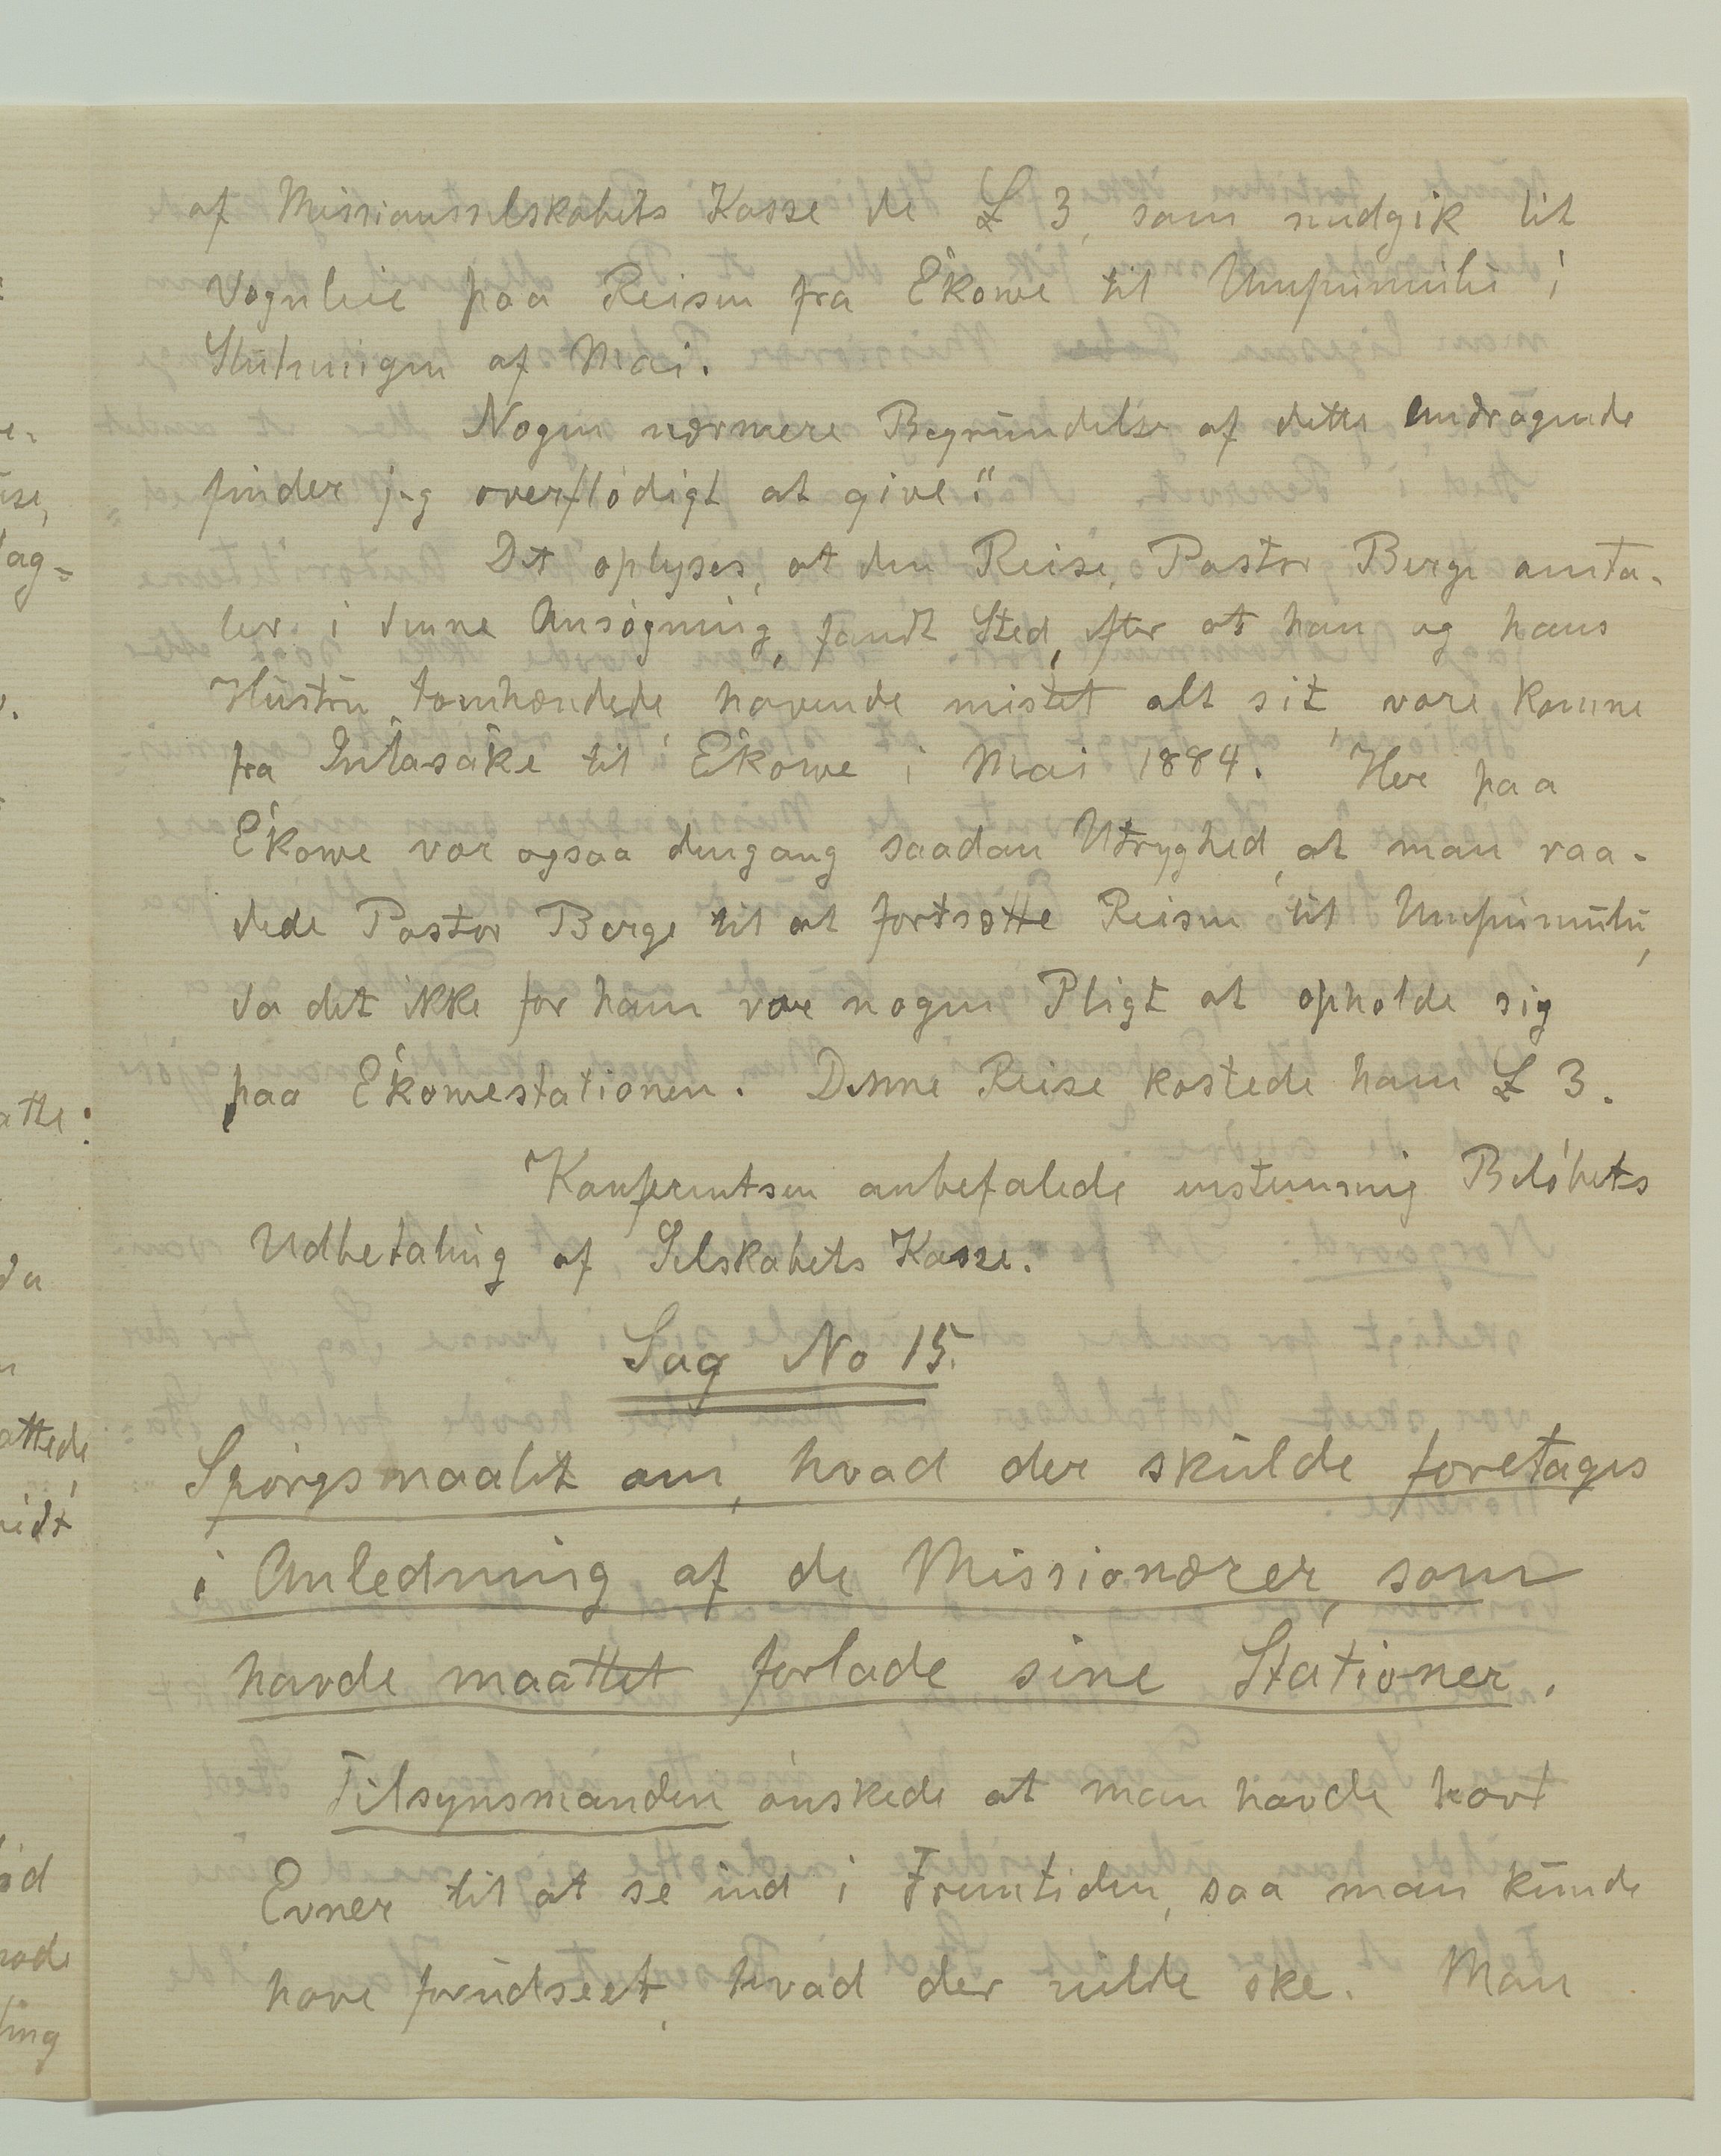 af Missionsselskabets Kasse de £ 3, som medgik til
Vognleie paa Reisen fra Ekowe til Umpumulu i
Slutningen af Mai.
Nogen nærmere Begrundelse af dette Andragende
finder jeg overflødigt at give."
Det oplyses, at den Reise, Pastor Berge omta-
ler i denne Ansøgning, fandt Sted, efter at han og hans
Hustru tomhændede, havende mistet alt sit, vare komne
fra Inlasake til Ekowe i Mai 1884. Her paa
Ekowe var ogsaa dengang saadan Utryghed, at man raa-
dede Pastor Berge til at fortsætte Reisen til Umpumulu,
da det ikke for ham var nogen Pligt at opholde sig
paa Ekowestationen. Denne Reise kostede ham £ 3.
Konferentsen anbefalede enstemmig Beløbets
Udbetaling af Selskabets Kasse.
Sag No 15.
Spørgsmaalet om, hvad der skulde foretages
i Anledning af de Missionærer, som
havde maattet forlade sine Stationer.
Tilsynsmanden ønskede at man havde havt
Evner til at se ind i Fremtiden, saa man kunde
have forudseet, hvad der vilde ske. Man